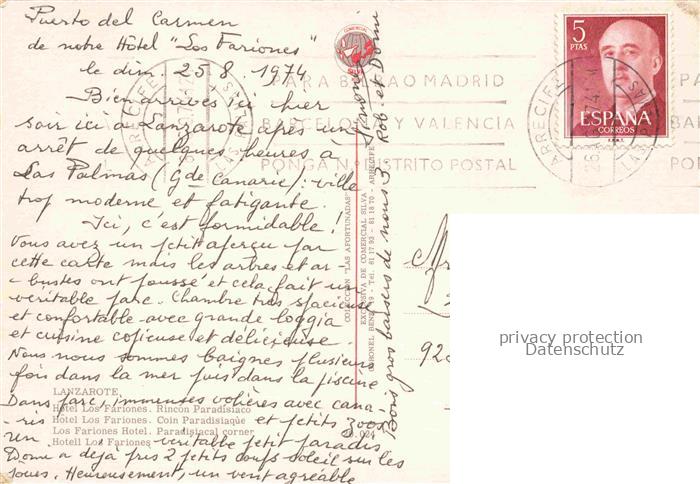 Puerto del Carmen
de notre Hôtel "Los Fariones"
le dim. 25.8.1974
Bien arrivés ici hier
soir ici à Lanzarote après un
arrêt de quelques heures à
Las Palmas (Gde Canarie): ville
trop moderne et fatigante.
Ici, c'est formidable!
Vous avez un petit aperçu par
cette carte mais les arbres et ar-
bustes ont poussé et cela fait un
véritable parc. Chambre très spacieuse
et confortable avec grande loggia
et cuisine copieuse et délicieuse.
Nous nous sommes baignés plusieurs
fois dans la mer puis dans la piscine
Dans parc, immenses volières avec cana-
ris et petits zoos
un véritable petit paradis
Domi a déjà pris 2 petits coups soleil sur les
joues. Heureusement, un vent agréable
Bons gros baisers de nous 3
Rob. et Domi
LANZAROTE
Hotel Los Fariones. Rincón Paradisíaco
Hotel Los Fariones. Coin Paradisiaque
Los Fariones Hotel. Paradisiacal corner
Hotell Los Fariones
COLECCION "LAS AFORTUNADAS"
EXCLUSIVA DE COMERCIAL SILVA
CORONEL BENS, 19 - Tel. 81 17 93 - 81 18 70 - ARRECIFE
5
PTAS
ESPAÑA
CORREOS
PARA BILBAO MADRID
BARCELONA Y VALENCIA
PONGA Nº DISTRITO POSTAL
ARRECIFE
LAS PALMAS
ARRECIFE
920
privacy protection
Datenschutz